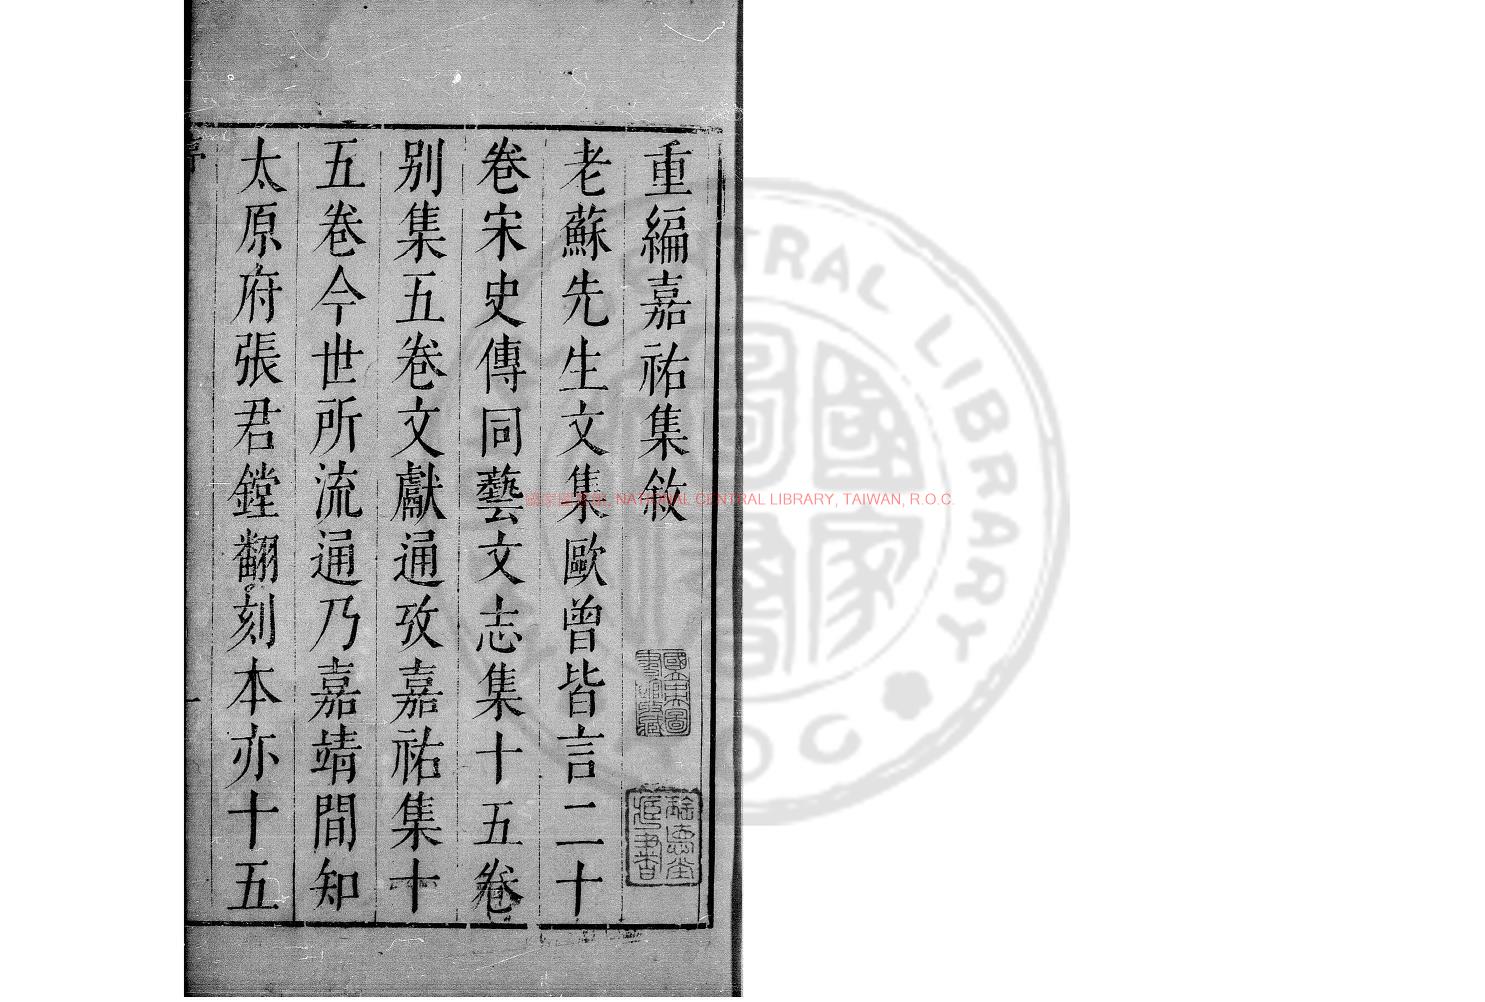 重編嘉祐集敘
老蘇先生文集歐曾皆言二十
卷宋史傳同藝文志集十五卷
別集五卷文獻通攷嘉祐集十
五卷今世所流通乃嘉靖間知
太原府張君鏜翻刻本亦十五
國家圖書館, NATIONAL CENTRAL LIBRARY, TAIWAN, R.O.C.
CENTRAL LIBRARY
國家圖書
R.O.C